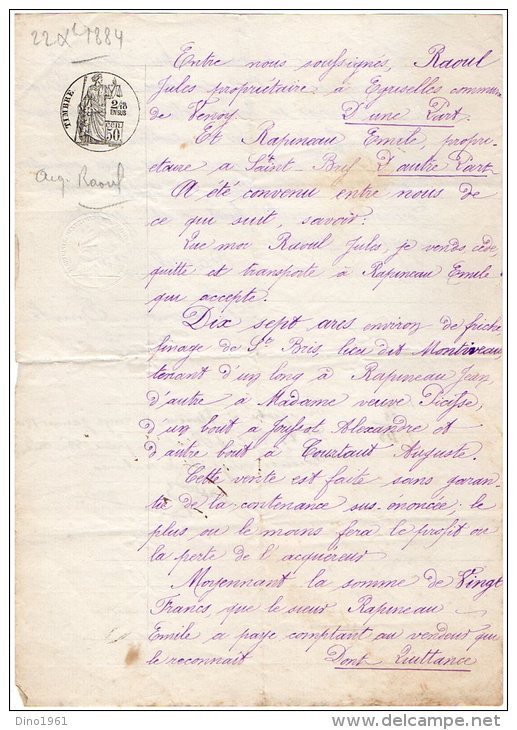 22 Xbre 1884
TIMBRE
2/10
EN SUS
50
acq. Raoul
Entre nous soussignés, Raoul
Jules propriétaire à Egriselles commune
de Venoy. D'une Part.
Et Rapineau Emile, propri-
etaire a Saint Bris D'autre Part.
A été convenu entre nous de
ce qui suit, savoir:
Que moi Raoul Jules, je vends, cède,
quitte et transporte à Rapineau Emile
qui accepte.
Dix sept ares environ de friche
finage de St Bris, lieu dit Montiveau
tenant d'un long à Rapineau Jean
d'autre à Madame veuve
d'un bout à Joussot Alexandre et
d'autre bout à Courtaut Auguste.
Cette vente est faite sans garan-
tie de la contenance sus énoncée; le
plus ou le moins fera le profit ou
la perte de l'acquéreur
Moyennant la somme de Vingt
Francs, que le sieur Rapineau
Emile a payé comptant au vendeur qui
le reconnait Dont Quittance
Dino1961
delcampe.net